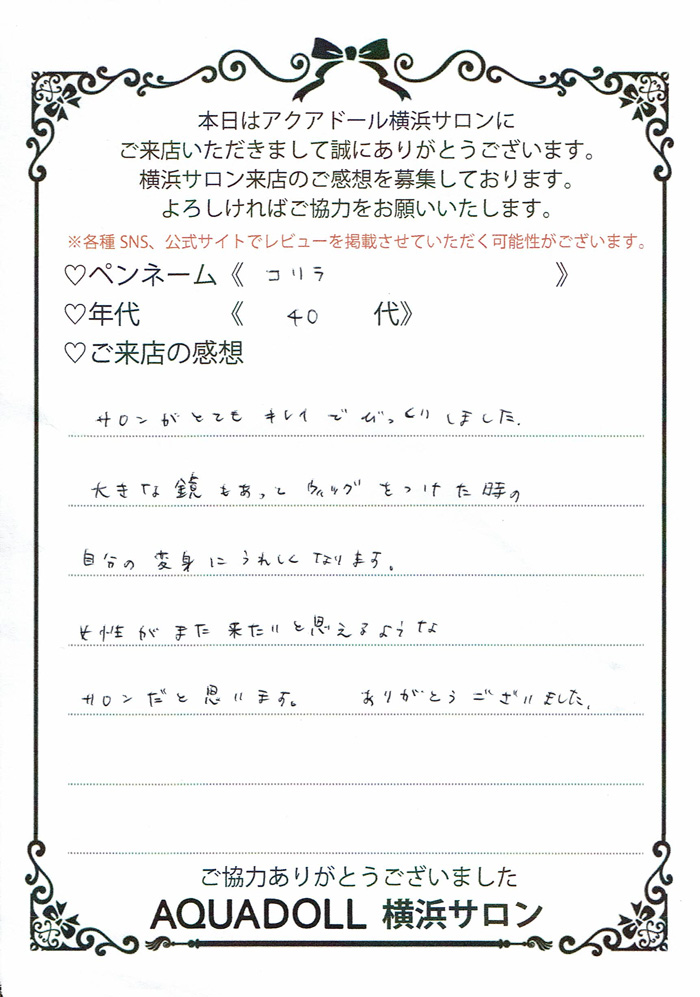 本日はアクアドール横浜サロンに
ご来店いただきまして誠にありがとうございます。
横浜サロン来店のご感想を募集しております。
よろしければご協力をお願いいたします。
※各種SNS、公式サイトでレビューを掲載させていただく可能性がございます。
♡ペンネーム《 コリラ 》
♡年代 《 40 代》
♡ご来店の感想
サロンがとてもキレイでびっくりしました.
大きな鏡もあってウィッグをつけた時の
自分の変身にうれしくなります。
女性がまた来たいと思えるような
サロンだと思います。 ありがとうございました。
ご協力ありがとうございました
AQUADOLL 横浜サロン